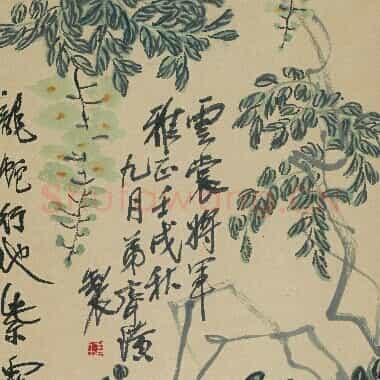 雲裳將軍
雅正壬戌秋
九月弟齊璜
製
龍蛇行地紫雲